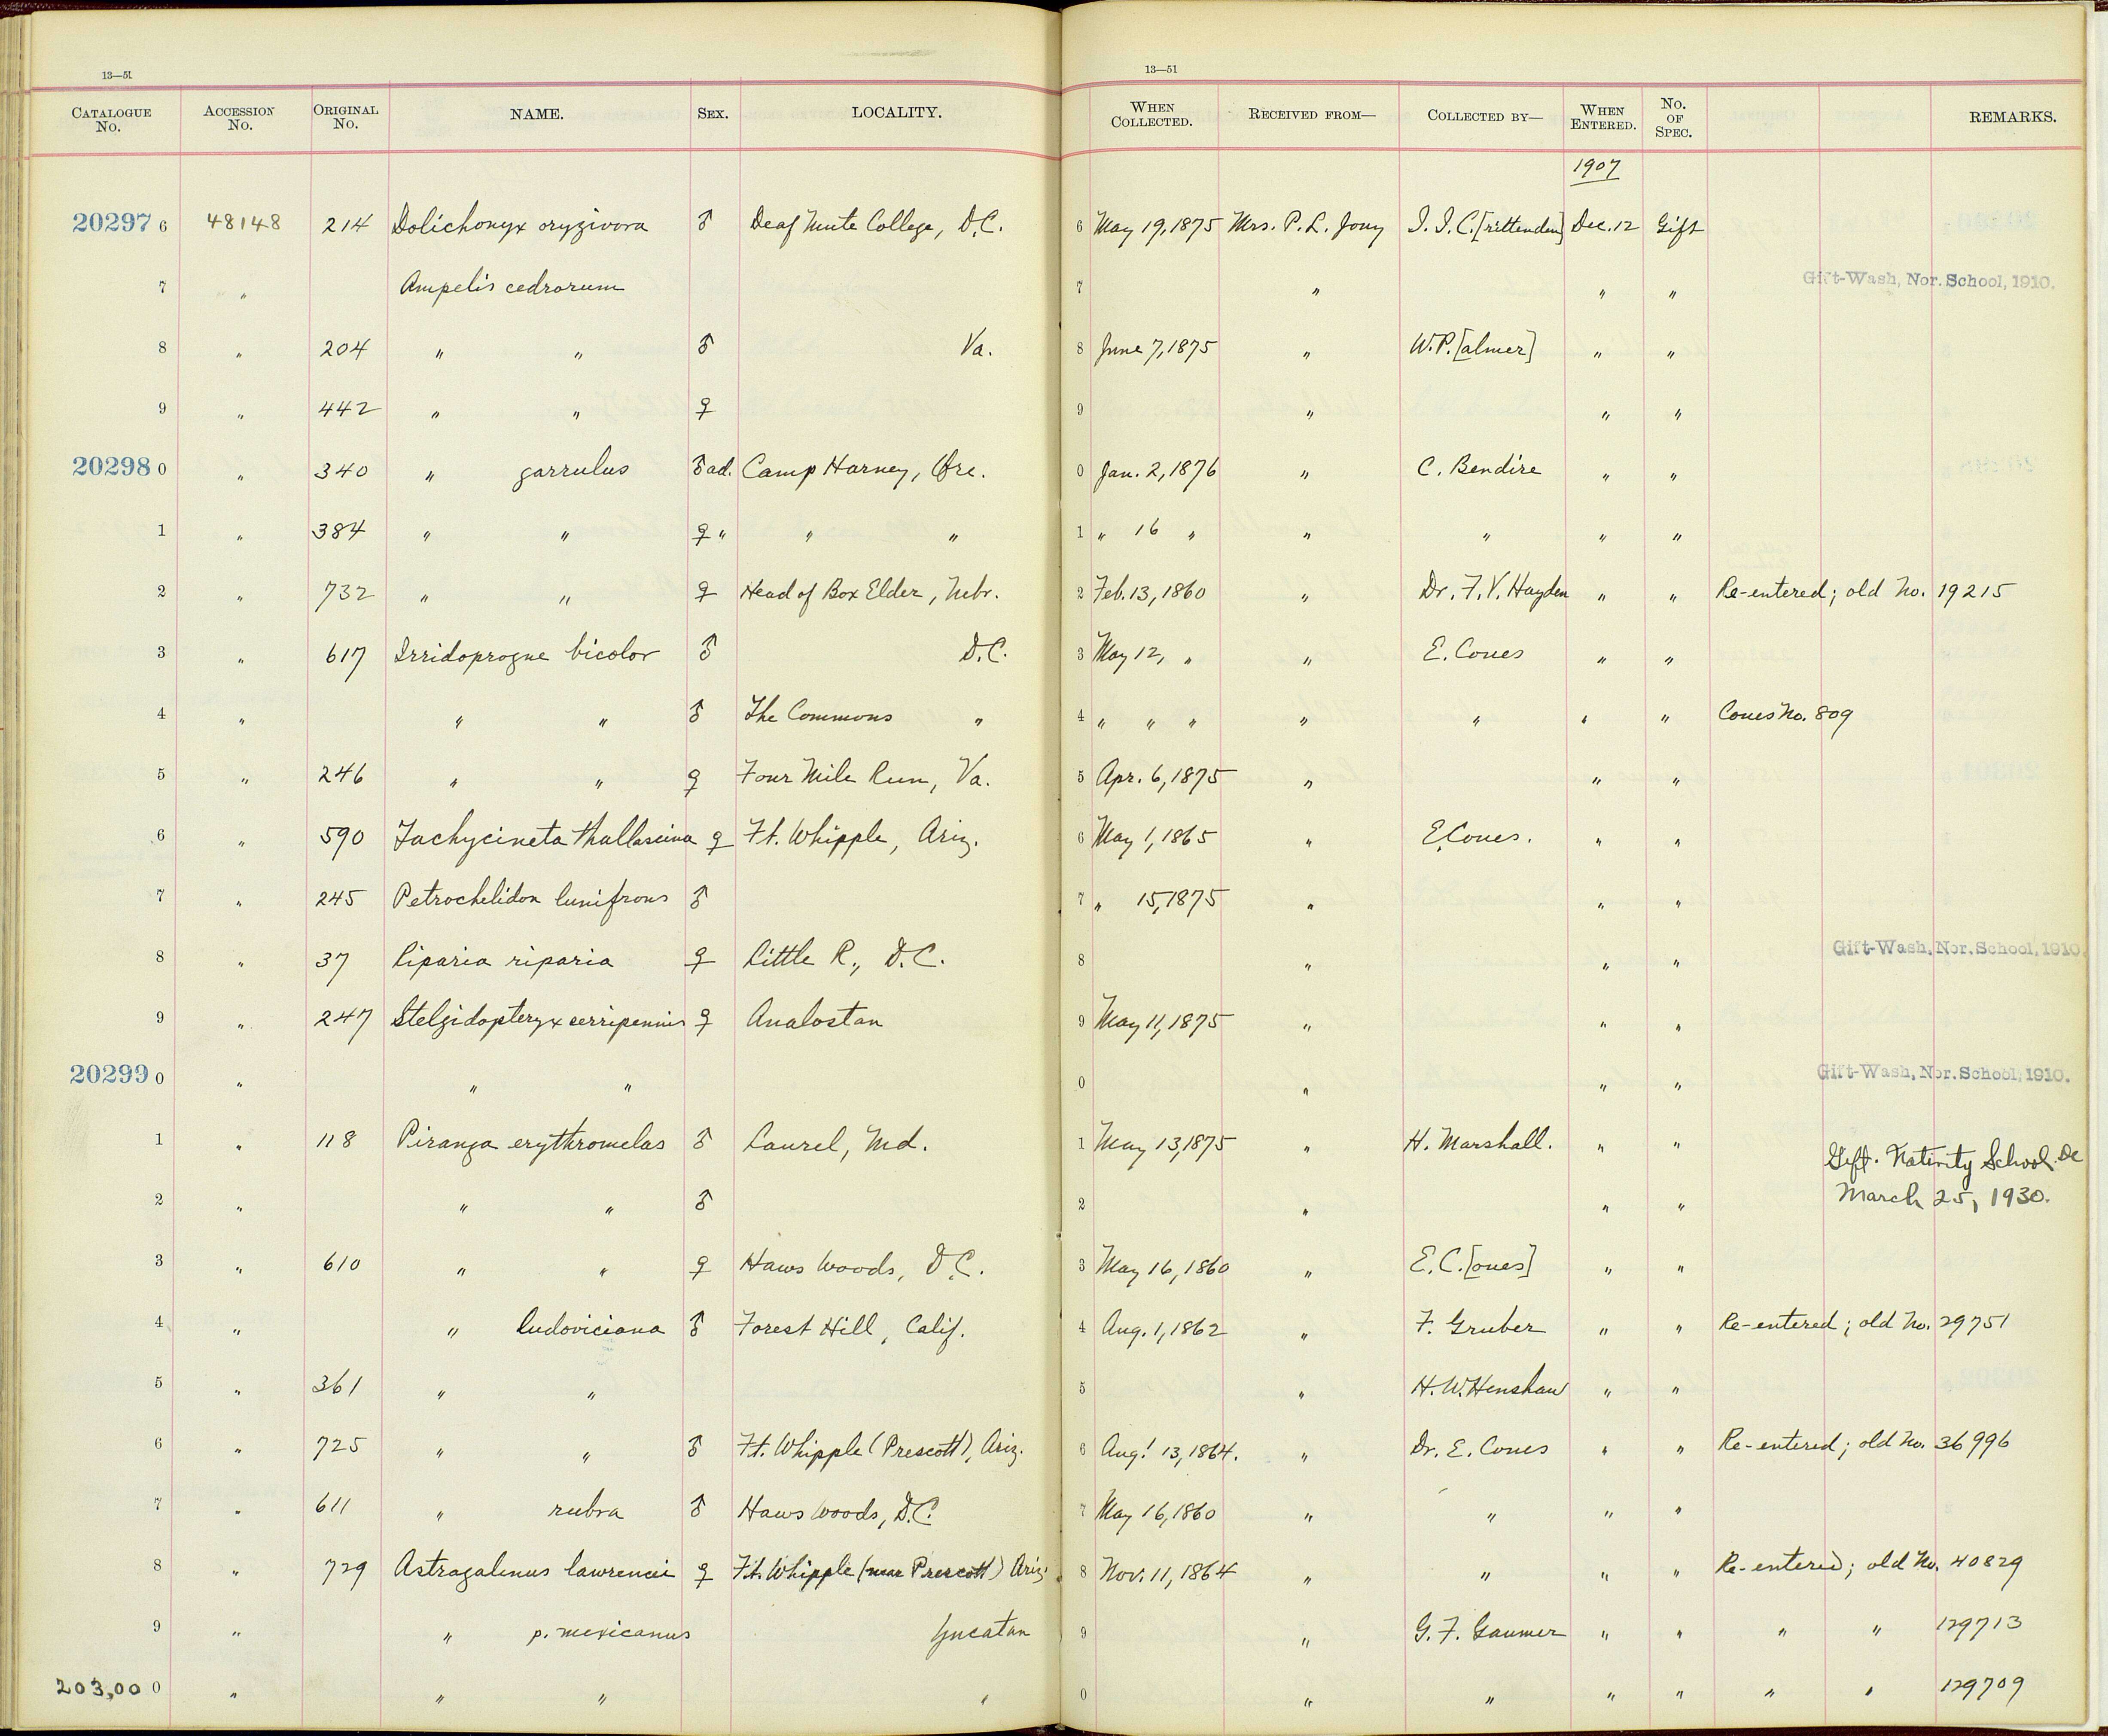 13—51 13—51
CATALOGUE No. ACCESSION No. ORIGINAL No. NAME. SEX. LOCALITY. WHEN COLLECTED. RECEIVED FROM— COLLECTED BY— WHEN ENTERED. No. OF SPEC. REMARKS.
1907
20297 6 48148 214 Dolichonyx oryzivora ♂ Deaf Mute College, D.C. 6 May 19, 1875 Mrs. P. L. Jouy J. J. C. [rittenden] Dec. 12 Gift
7 " Ampelis cedrorum 7 " " " Gift-Wash, Nor. School, 1910.
8 " 204 " " ♂ Va. 8 June 7, 1875 " W. P. [almer] " "
9 " 442 " " ♀ 9 " " "
20298 0 " 340 " garrulus ♂ ad. Camp Harney, Ore. 0 Jan. 2, 1876 " C. Bendire " "
1 " 384 " " ♀ " " " 1 " 16 " " " " "
2 " 732 " " ♀ Head of Box Elder, Nebr. 2 Feb. 13, 1860 " Dr. F. V. Hayden " " Re-entered; old No. 19215
3 " 617 Irridoprogne bicolor ♂ D.C. 3 May 12, " " E. Coues " "
4 " " " ♂ The Commons " 4 " " " " " " " Coues No. 809
5 " 246 " " ♀ Four Mile Run, Va. 5 Apr. 6, 1875 " " "
6 " 590 Tachycineta thallassina ♀ Ft. Whipple, Ariz. 6 May 1, 1865 " E. Coues. " "
7 " 245 Petrochelidon lunifrons ♂ 7 " 15, 1875 " " "
8 " 37 Riparia riparia ♀ Little R., D.C. 8 " " " Gift-Wash, Nor. School, 1910.
9 " 247 Stelgidopteryx serripennis ♀ Analostan 9 May 11, 1875 " " "
20299 0 " " " 0 " " " Gift-Wash, Nor. School, 1910.
1 " 118 Piranga erythromelas ♂ Laurel, Md. 1 May 13, 1875 " H. Marshall. " " Gift. Nativity School. DC
2 " " " ♂ 2 " " " March 25, 1930.
3 " 610 " " ♀ Haws Woods, D.C. 3 May 16, 1860 " E. C. [oues] " "
4 " " ludoviciana ♂ Forest Hill, Calif. 4 Aug. 1, 1862 " F. Gruber " " Re-entered; old No. 29751
5 " 361 " " 5 " H. W. Henshaw " "
6 " 725 " " ♂ Ft. Whipple (Prescott), Ariz. 6 Aug. 13, 1864. " Dr. E. Coues " " Re-entered; old No. 36996
7 " 611 " rubra ♂ Haws Woods, D.C. 7 May 16, 1860 " " " "
8 " 729 Astragalinus lawrencei ♀ Ft. Whipple (near Prescott) Ariz. 8 Nov. 11, 1864 " " " " Re-entered; old No. 40829
9 " " p. mexicanus Yucatan 9 " G. F. Gaumer " " " " 129713
203,00 0 " " " " 0 " " " " " " 129709